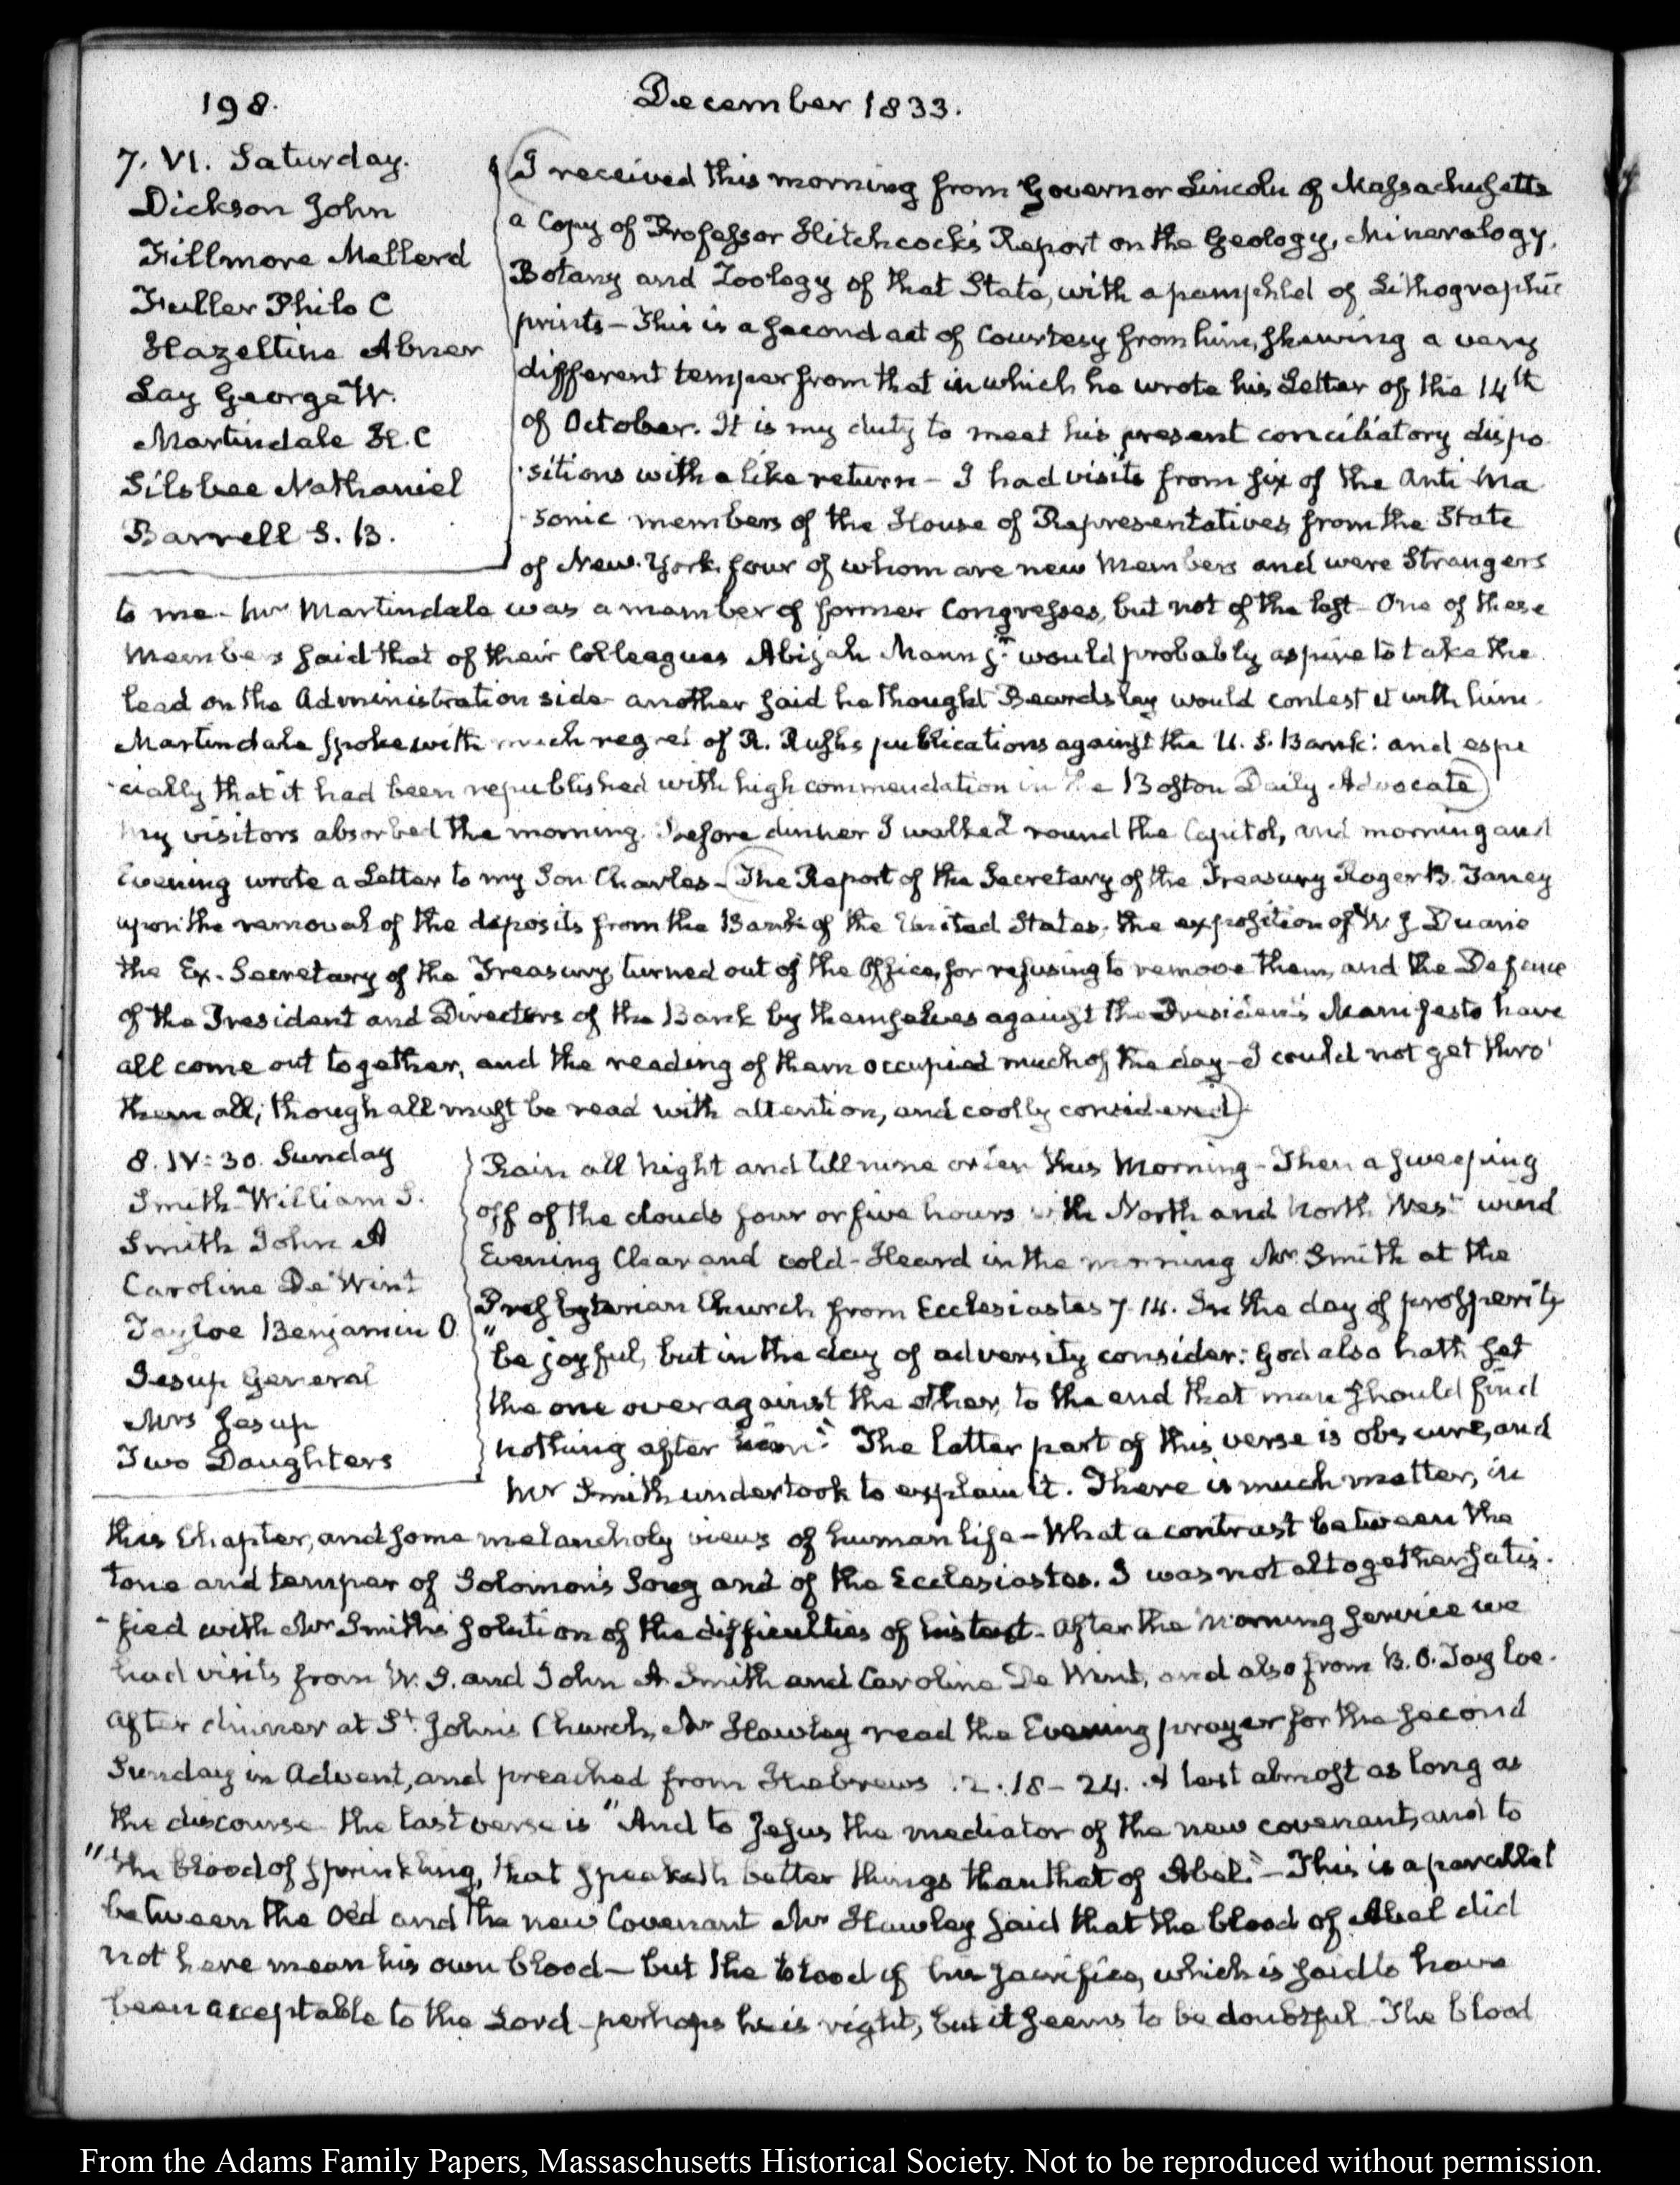 198.
December 1833.
7. VI. Saturday.
Dickson John
Fillmore Mellerd
Fuller Philo C
Hazeltine Abner
Lay George W.
Martindale H. C
Silsbee Nathaniel
Barrell S. B.
I received this morning from Governor Lincoln of Massachusetts
a Copy of Professor Hitchcock's Report on the Geology, Mineralogy,
Botany and Zoology of that State, with a pamphlet of Lithographic
prints - This is a second act of Courtesy from him, shewing a very
different temper from that in which he wrote his Letter of the 14th
of October. It is my duty to meet his present conciliatory dispo
-sitions with a like return - I had visits from six of the Anti Ma
-sonic members of the House of Representatives from the State
of New-York four of whom are new Members and were Strangers
to me - Mr Martindale was a member of former Congresses, but not of the last - One of these
Members said that of their Colleagues Abijah Mann Jr. would probably aspire to take the
lead on the Administration side - another said he thought Beardsley would contest it with him.
Martindale spoke with much regret of R. Rush's publications against the U. S. Bank: and espe
-cially that it had been republished with high commendation in the Boston Daily Advocate
My visitors absorbed the morning. Before dinner I walked round the Capitol, and morning and
Evening wrote a Letter to my Son Charles - The Report of the Secretary of the Treasury Roger B. Taney
upon the removal of the deposits from the Bank of the United States, the exposition of W J Duane
the Ex-Secretary of the Treasury, turned out of the Office, for refusing to remove them, and the Defence
of the President and Directors of the Bank by themselves against the President's Manifesto have
all come out together, and the reading of them occupied much of the day - I could not get thro'
them all; though all must be read with attention, and coolly considered
8. IV: 30. Sunday
Smith William S.
Smith John A
Caroline De Wint
Tayloe Benjamin O
Jesup General
Mrs Jesup
Two Daughters
Rain all Night and till nine or ten this Morning - Then a sweeping
off of the clouds four or five hours with North and North West wind
Evening Clear and cold - Heard in the morning Mr Smith at the
Presbyterian Church from Ecclesiastes 7. 14. In the day of prosperity
"be joyful, but in the day of adversity consider: God also hath set
the one over against the other, to the end that man should find
nothing after him." The latter part of this verse is obscure, and
Mr Smith undertook to explain it. There is much matter, in
this Chapter, and some melancholy views of human life - What a contrast between the
tone and temper of Solomon's Song and of the Ecclesiastes. I was not altogether satis-
-fied with Mr Smith's solution of the difficulties of his text - After the Morning service we
had visits from W. S. and John A Smith and Caroline De Wint, and also from B. O. Tayloe.
After dinner at St. John's Church, Mr Hawley read the Evening prayer for the second
Sunday in Advent, and preached from Hebrews 12. 18-24. A text almost as long as
the discourse the last verse is "And to Jesus the mediator of the new covenant, and to
"the blood of sprinkling, that speaketh better things than that of Abel." - This is a parallel
between the Old and the new Covenant Mr Hawley said that the blood of Abel did
not here mean his own blood - but the blood of his sacrifice, which is said to have
been acceptable to the Lord - perhaps he is right, but it seems to be doubtful - The blood
From the Adams Family Papers, Massachusetts Historical Society. Not to be reproduced without permission.